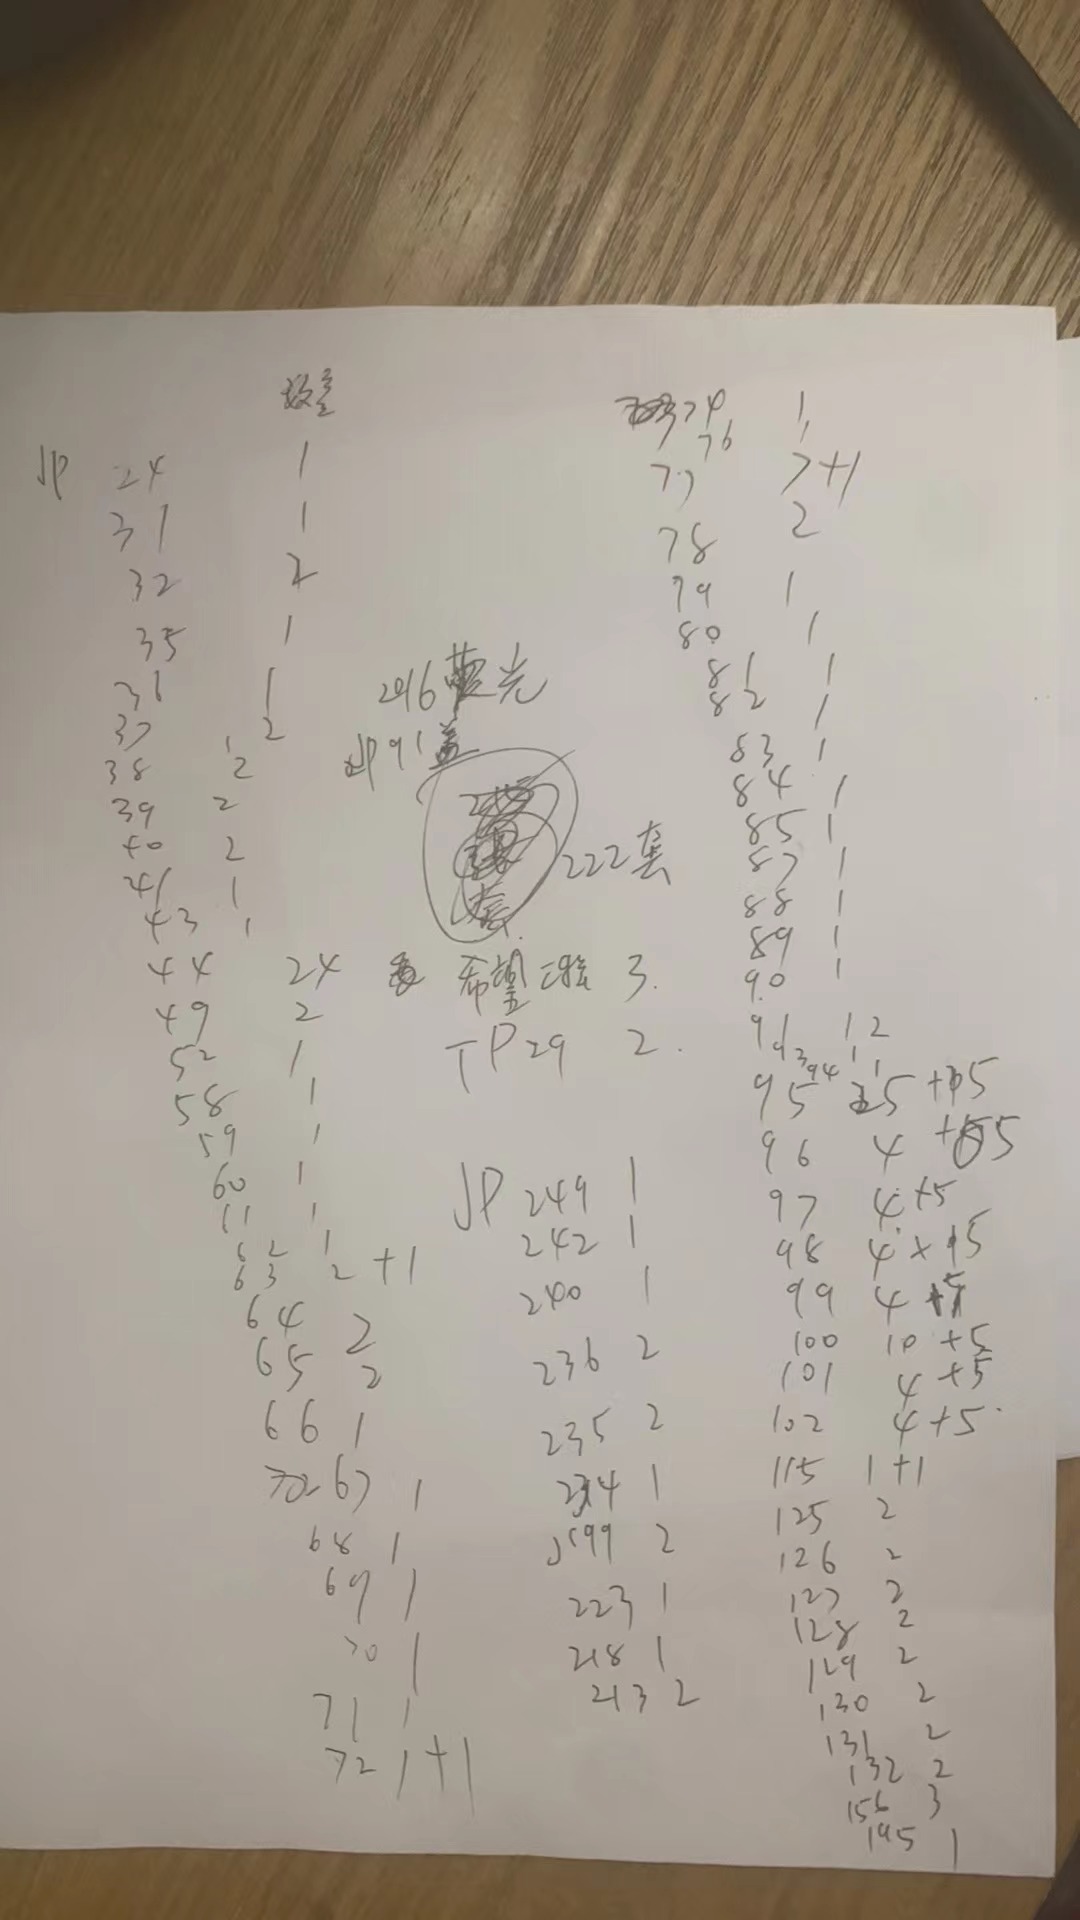 数量
JP 24 1
31 1
32 2
35 1
36 1
37 2
38 2
39 2
40 2
41 1
43 1
44 24
49 2
52 1
58 1
59 1
60 1
61 1
62 1
63 2 +1
64 2
65 2
66 1
67 1
68 1
69 1
70 1
71 1
72 1+1
光
JP91盖
222套
希望 3.
TP29 2.
JP 249 1
242 1
240 1
236 2
235 2
234 1
199 2
223 1
218 1
213 2
74 1
76 1
77 7+1
78 2
79 1
80 1
81 1
82 1
83 1
84 1
85 1
87 1
88 1
89 1
90 1
91 12
93 1
94 1
95 5 +5
96 4 +5
97 4 +5
98 4 +5
99 4 +5
100 10 +5
101 4 +5
102 4+5
115 1+1
125 2
126 2
127 2
128 2
129 2
130 2
131 2
132 2
156 3
195 1